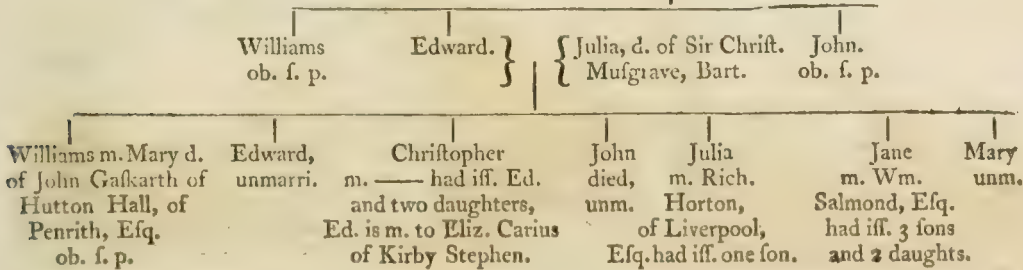 Williams
ob. ſ. p.
Edward.
Julia, d. of Sir Chriſt.
Muſgrave, Bart.
John.
ob. ſ. p.
Williams m. Mary d.
of John Gaſkarth of
Hutton Hall, of
Penrith, Eſq.
ob. ſ. p.
Edward,
unmarri.
Chriſtopher
m. —— had iſſ. Ed.
and two daughters,
Ed. is m. to Eliz. Carius
of Kirby Stephen.
John
died,
unm.
Julia
m. Rich.
Horton,
of Liverpool,
Eſq. had iſſ. one ſon.
Jane
m. Wm.
Salmond, Eſq.
had iſſ. 3 ſons
and 2 daughts.
Mary
unm.